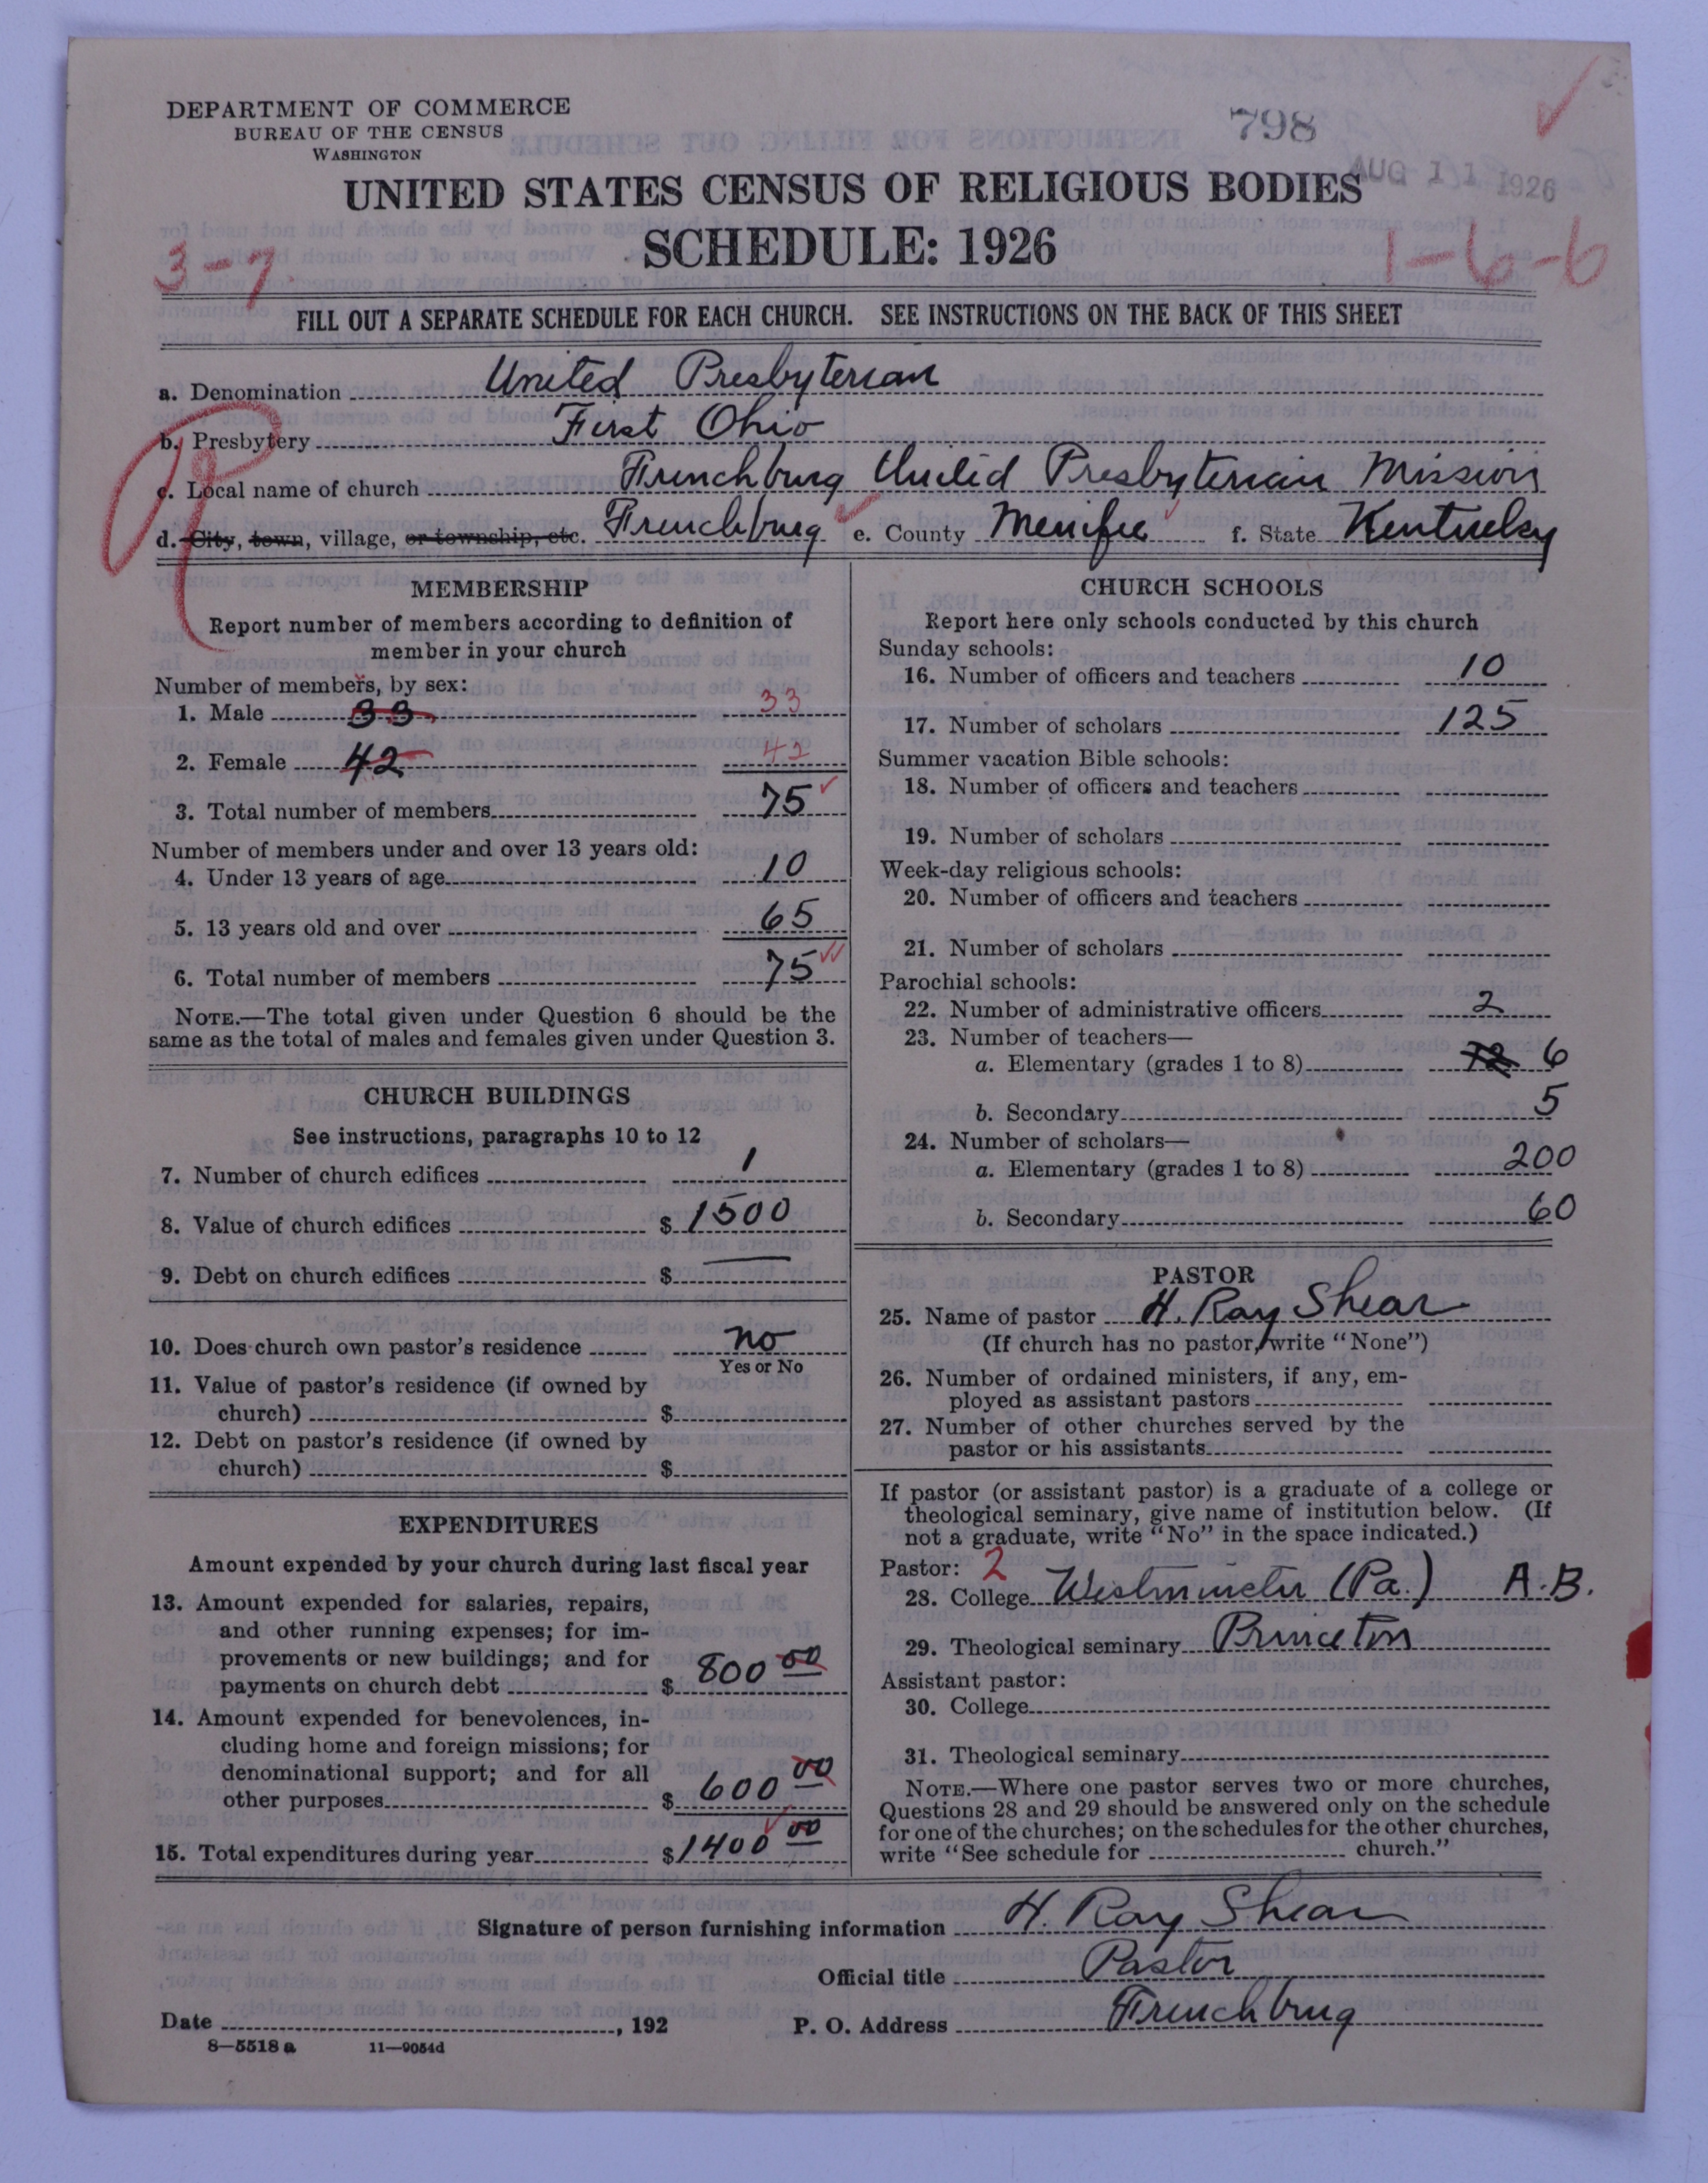 DEPARTMENT OF COMMERCE
BUREAU OF THE CENSUS
WASHINGTON
798
AUG 11 1926
UNITED STATES CENSUS OF RELIGIOUS BODIES
SCHEDULE: 1926
3-7
1-6-6
FILL OUT A SEPARATE SCHEDULE FOR EACH CHURCH. SEE INSTRUCTIONS ON THE BACK OF THIS SHEET
a. Denomination United Presbyterian
b. Presbytery First Ohio
c. Local name of church Frenchburg United Presbyterian Mission
d. City, town, village, or township, etc. Frenchburg e. County Menifee f. State Kentucky
MEMBERSHIP
Report number of members according to definition of
member in your church
Number of members, by sex:
1. Male 33 33
2. Female 42 42
3. Total number of members 75
Number of members under and over 13 years old:
4. Under 13 years of age 10
5. 13 years old and over 65
6. Total number of members 75
NOTE.—The total given under Question 6 should be the
same as the total of males and females given under Question 3.
CHURCH BUILDINGS
See instructions, paragraphs 10 to 12
7. Number of church edifices 1
8. Value of church edifices $ 1500
9. Debt on church edifices $ —
10. Does church own pastor's residence no
Yes or No
11. Value of pastor's residence (if owned by
church) $
12. Debt on pastor's residence (if owned by
church) $
EXPENDITURES
Amount expended by your church during last fiscal year
13. Amount expended for salaries, repairs,
and other running expenses; for im-
provements or new buildings; and for
payments on church debt $ 800 00
14. Amount expended for benevolences, in-
cluding home and foreign missions; for
denominational support; and for all
other purposes $ 600 00
15. Total expenditures during year $ 1400 00
CHURCH SCHOOLS
Report here only schools conducted by this church
Sunday schools:
16. Number of officers and teachers 10
17. Number of scholars 125
Summer vacation Bible schools:
18. Number of officers and teachers
19. Number of scholars
Week-day religious schools:
20. Number of officers and teachers
21. Number of scholars
Parochial schools:
22. Number of administrative officers 2
23. Number of teachers—
a. Elementary (grades 1 to 8) 6
b. Secondary 5
24. Number of scholars—
a. Elementary (grades 1 to 8) 200
b. Secondary 60
PASTOR
25. Name of pastor H. Ray Shear
(If church has no pastor, write "None")
26. Number of ordained ministers, if any, em-
ployed as assistant pastors
27. Number of other churches served by the
pastor or his assistants
If pastor (or assistant pastor) is a graduate of a college or
theological seminary, give name of institution below. (If
not a graduate, write "No" in the space indicated.)
Pastor: 2
28. College Westminster (Pa.) A.B.
29. Theological seminary Princeton
Assistant pastor:
30. College
31. Theological seminary
NOTE.—Where one pastor serves two or more churches,
Questions 28 and 29 should be answered only on the schedule
for one of the churches; on the schedules for the other churches,
write "See schedule for church."
Signature of person furnishing information H. Ray Shear
Official title Pastor
Date , 192 P. O. Address Frenchburg
8—5518 a 11—9054d